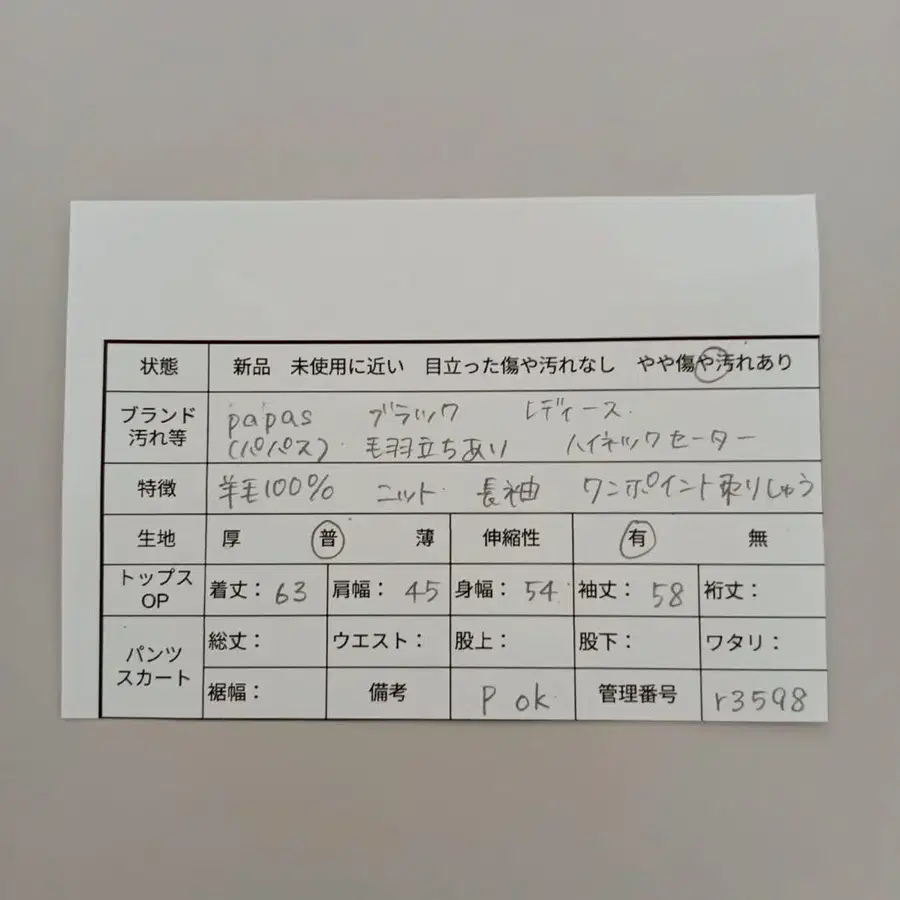 状態 新品 未使用に近い 目立った傷や汚れなし やや傷や汚れあり
ブランド 汚れ等 papas ブラック レディース.
(パパス) 毛羽立ちあり ハイネックセーター
特徴 羊毛100% ニット 長袖 ワンポイント刺ししゅう
生地 厚 普 薄 伸縮性 有 無
トップス OP 着丈: 63 肩幅: 45 身幅: 54 袖丈: 58 裄丈:
パンツ スカート 総丈: ウエスト: 股上: 股下: ワタリ:
裾幅: 備考 P ok 管理番号 r3598